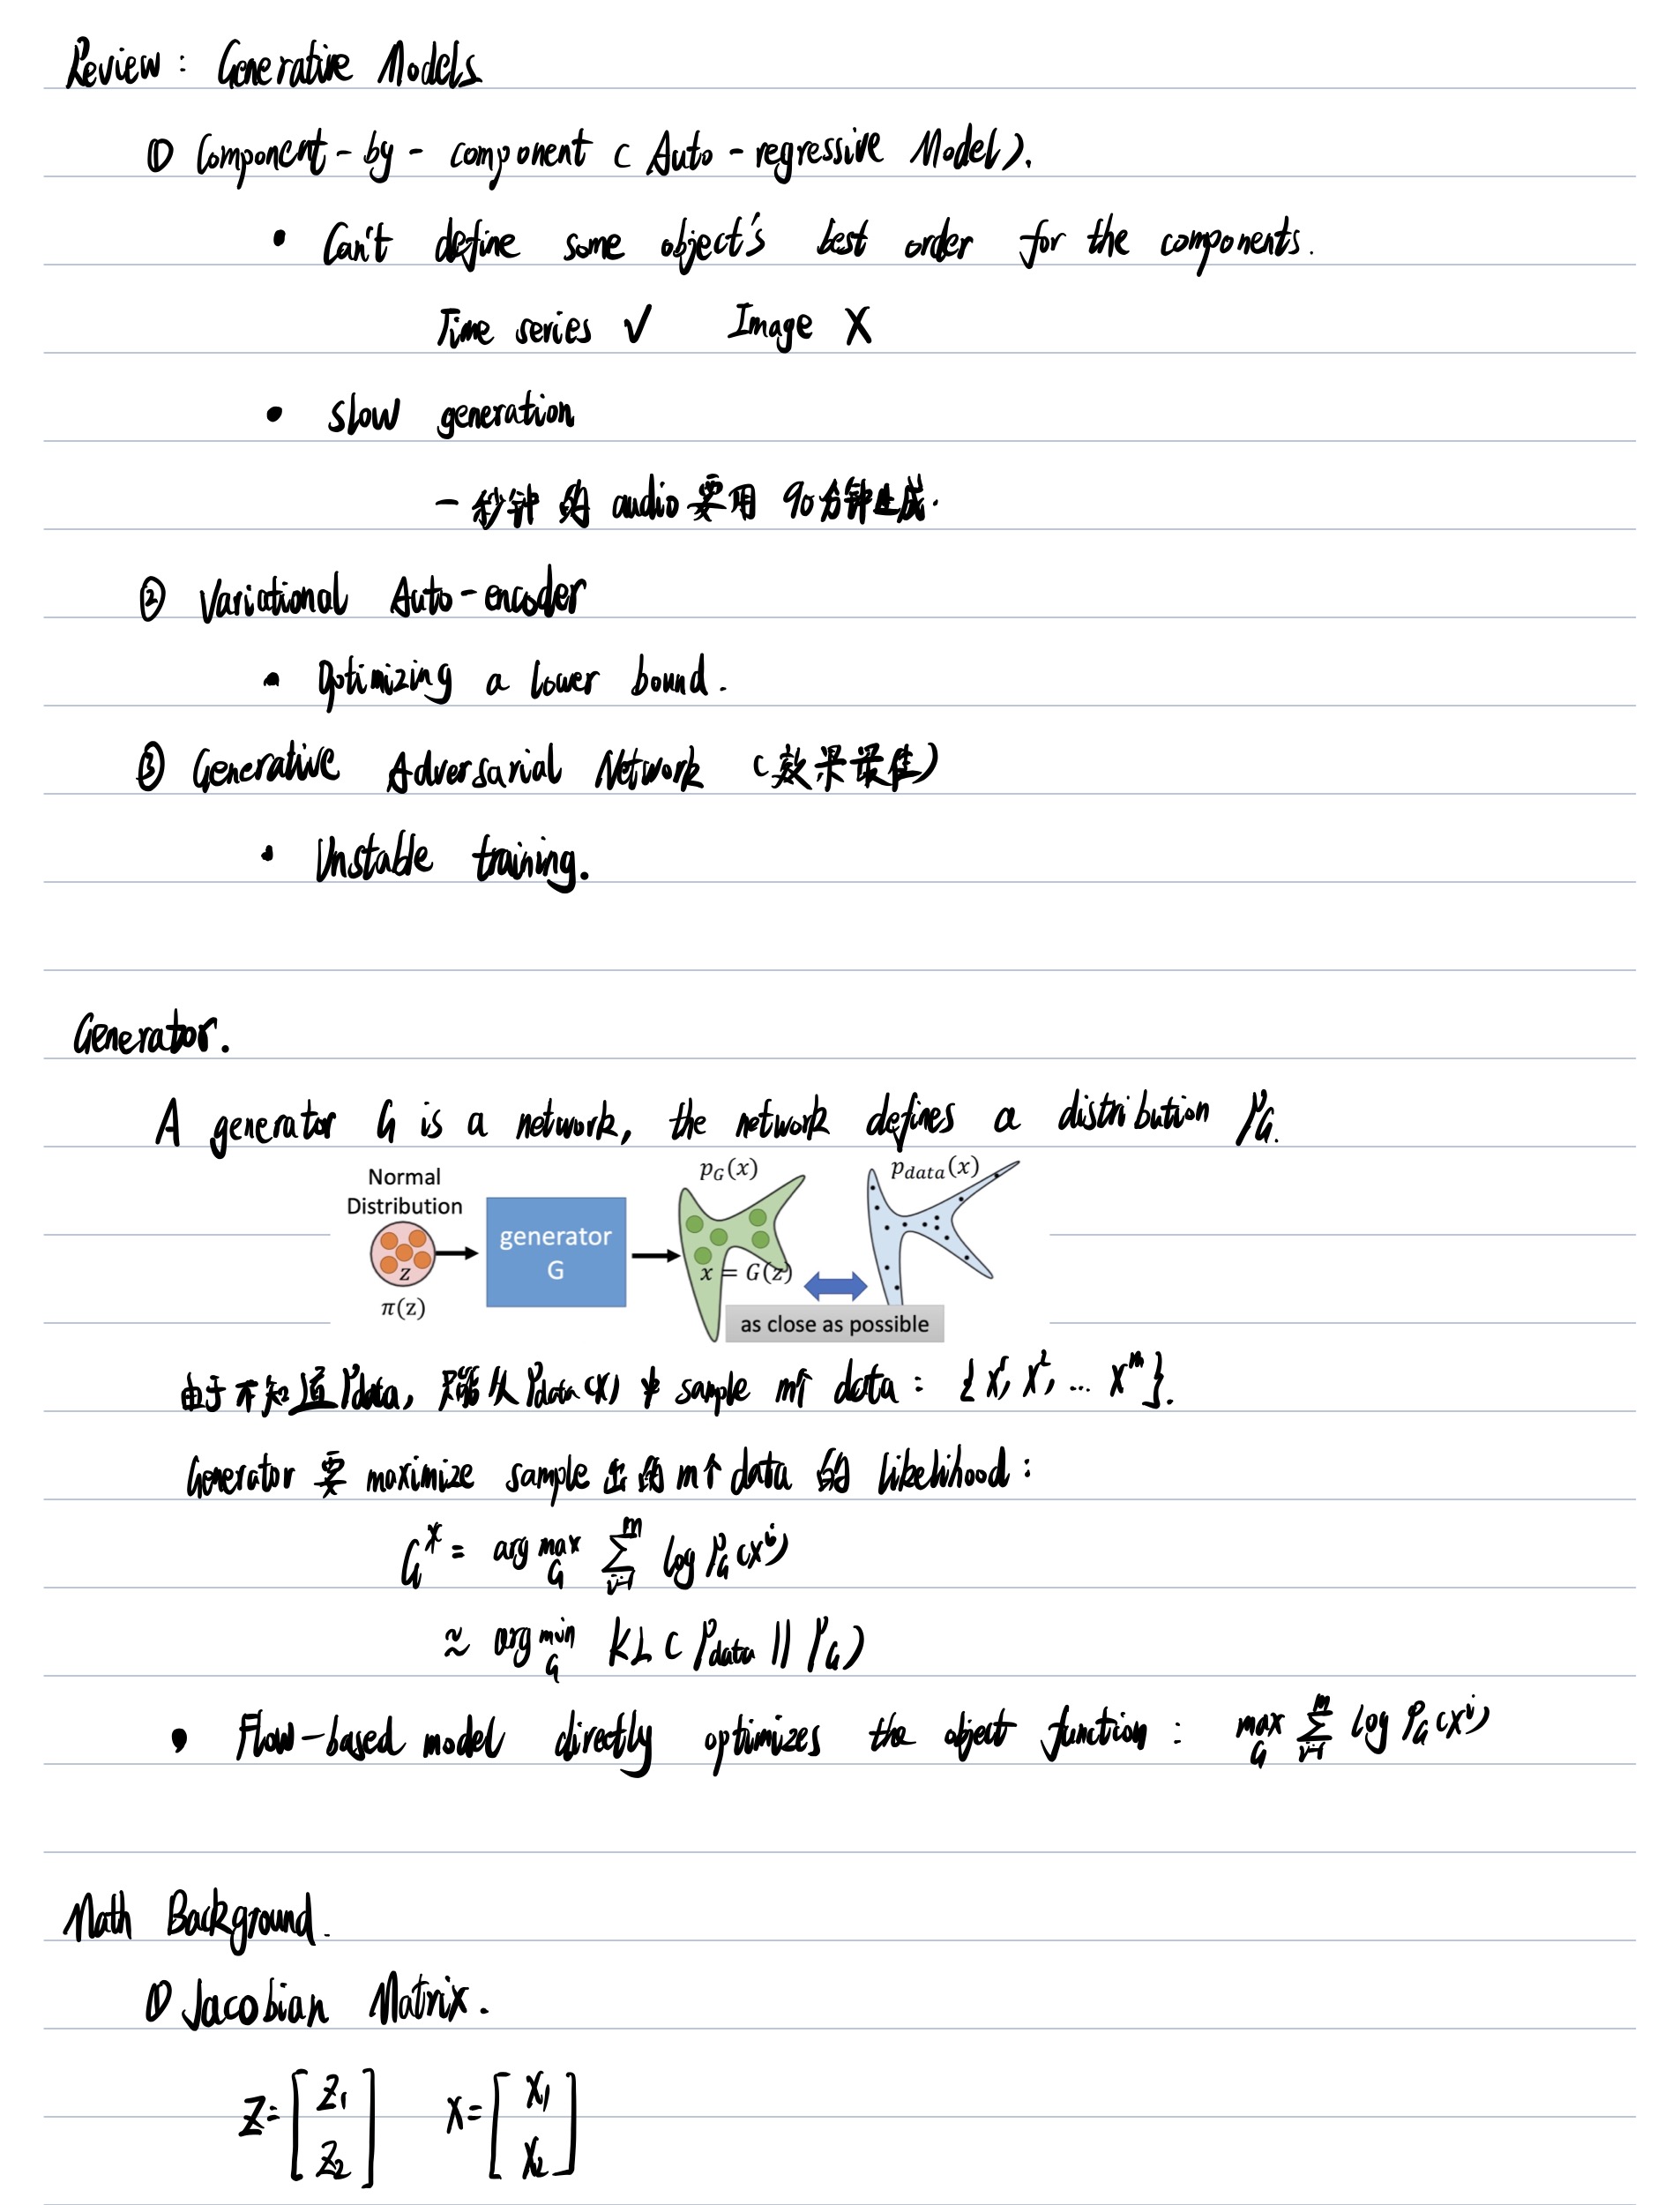 Review : Generative Models
① Component-by-component (Auto-regressive Model).
• Can't define some object's best order for the components.
Time series √ Image X
• Slow generation
一秒钟的 audio 要用 90分钟生成.
② Variational Auto-encoder
• Optimizing a lower bound.
③ Generative Adversarial Network (效果最佳)
• Unstable training.
Generator.
A generator G is a network, the network defines a distribution P_G.
Normal
Distribution
z
π(z)
generator
G
p_G(x)
x = G(z)
p_data(x)
as close as possible
由于不知道 P_data, 只能从 P_data(x) 中 sample m个 data : {x^1, x^2, ... x^m}.
Generator 要 maximize sample 出的 m个 data 的 likelihood :
G^* = arg max_G ∑_{i=1}^m log P_G(x^i)
≈ arg min_G KL(P_data || P_G)
• Flow-based model directly optimizes the object function : max_G ∑_{i=1}^m log P_G(x^i)
Math Background.
① Jacobian Matrix.
Z = [z_1 z_2] X = [x_1 x_2]